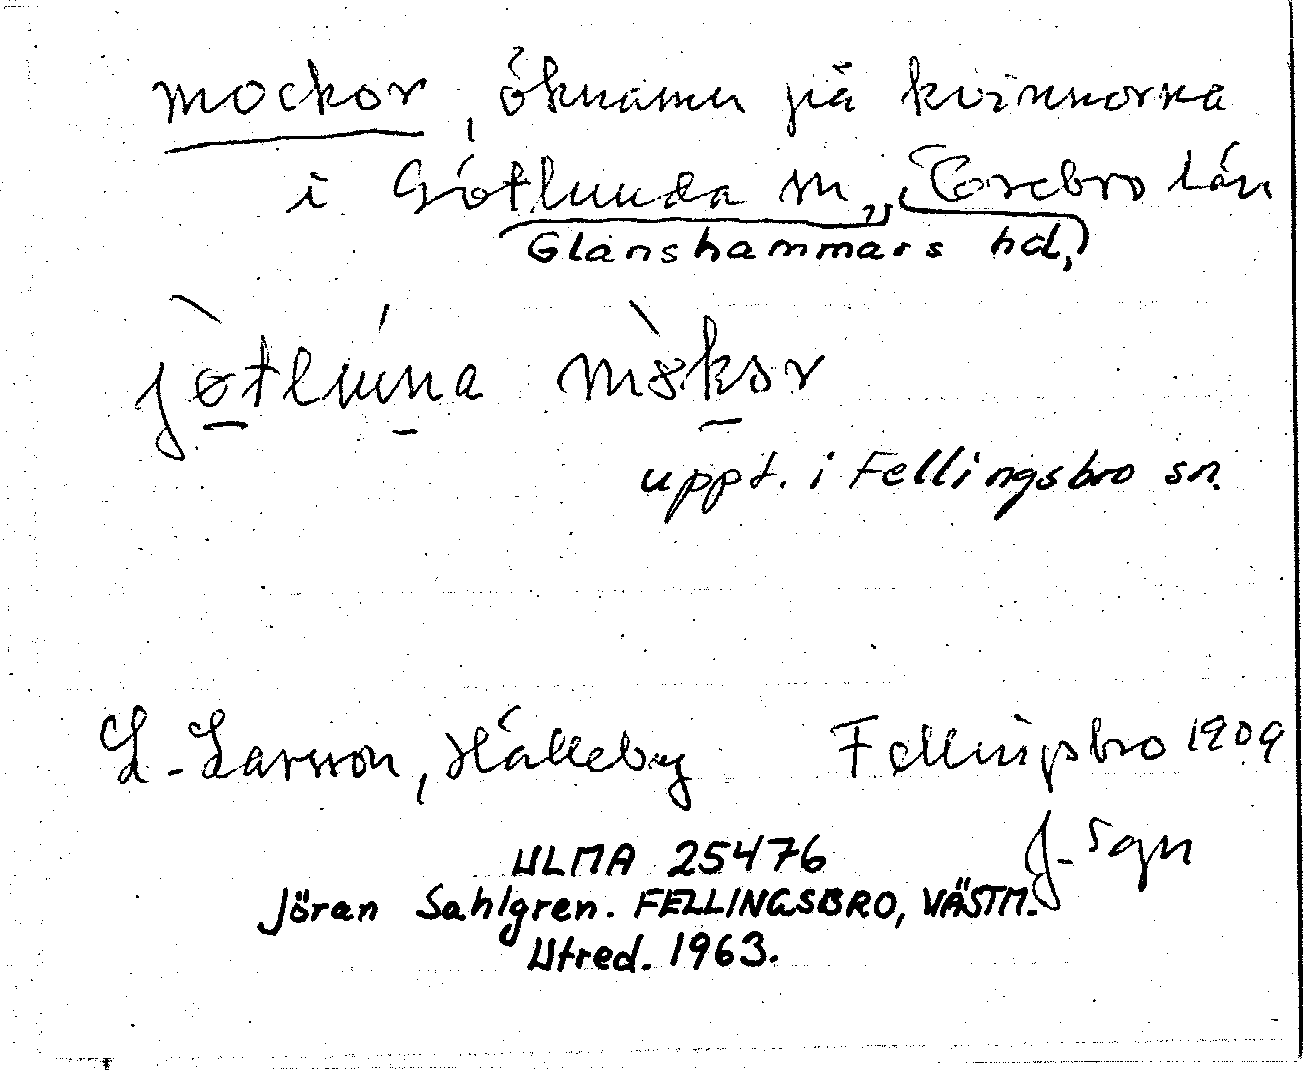 mockor, öknamn på kvinnorna
i Götlunda sn, Örebro län
Glanshammars hd,
jötlunna mokor
uppt. i Fellingsbro sn.
L. Larsson, Hälleby Fellingsbro 1909
J. Sgn
ULMA 25476
Jöran Sahlgren. FELLINGSBRO, VÄSTM.
Utred. 1963.